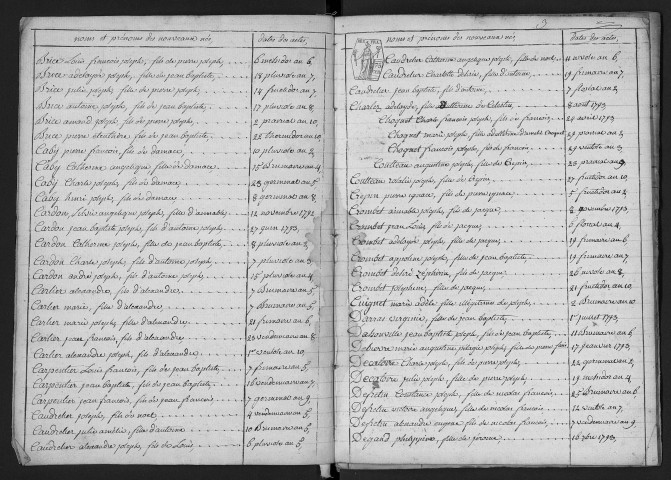 noms et prénoms des nouveaux nés, dates des actes,
Brice Louis françois joseph, fils de pierre joseph 6 messidor an 6,
Brice adelaïde joseph, fille de jean baptiste 18 pluviose an 7,
Brice julie joseph, fille de pierre joseph 14 fructidor an 7,
Brice antoine joseph, fils de jean baptiste 17 pluviose an 8,
Brice amand joseph, fils de pierre joseph 2 prairial an 10,
Brice pierre jean baptiste 22 thermidor an 10,
Caby pierre françois, fils de damace 10 pluviose an 2,
Caby Catherine angelique, fille de damace 15 Brumaire an 4,
Caby Charles joseph, fils de damace 23 germinal an 5,
Caby henri joseph, fils de damace 8 germinal an 8,
Cardon, Silvie angelique joseph, fille d'aimable 12 novembre 1792
Cardon jean baptiste joseph, fils d'antoine joseph 27 juin 1793,
Cardon Catherine joseph, fille de jean baptiste 8 pluviose an 2,
Cardon Charles joseph, fils d'antoine joseph 7 pluviose an 3,
Cardon andré joseph, fils d'antoine joseph 15 pluviose an 4,
Carlier alexandre, fils d'alexandre 7 Brumaire an 5,
Carlier marie, fille d'alexandre 7 Brumaire an 5,
Carlier marie joseph, fille d'alexandre 21 frimaire an 6,
Carlier jean françois, fils d'alexandre 23 vendemiaire an 8,
Carlier alexandre joseph, fils d'alexandre 1er ventose an 10,
Carpentier Louis françois, fils de jean baptiste 7 frimaire an 5,
Carpentier jean baptiste, fils de jean baptiste 16 vendemiaire an 7,
Carpentier jean françois, fils de jean françois 7 germinal an 9,
Caudrelier joseph, fils de noel 4 vendemiaire an 5,
Caudrelier julie amélie, fille d'antoine 10 Brumaire an 5,
Caudrelier alexandre joseph, fils de Louis 6 pluviose an 5,
3
noms et prénoms des nouveaux nés, Dates des actes,
Caudrelier Catherine angelique joseph, fille de noel 11 nivose an 6,
Caudrelier Charlotte désirée, fille d'antoine 19 frimaire an 7,
Caudrelier jean baptiste, fils d'antoine 7 floreal an 2,
Charlet adelaïde, fille de Célestin 8 aout 1793
Choquet Charles françois joseph, fils de françois 24 avril 1793,
Choquet marie joseph, Choquet 29 prairial an 2,
Choquet françois joseph, fils de françois 25 ventose an 3,
Coutteau augustine joseph, fille de Crépin 26 prairial an 3,
Coutteau rosalie joseph, fille de Crépin 27 fructidor an 10,
Crepin pierre ignace, fils de pierre ignace 5 fructidor an 2,
Crombet aimable joseph, fils de jacques 8 novembre 1793,
Crombet jean Louis, fils de jacques 6 floreal an 4,
Crombet adelaïde joseph, fille de jacques 19 frimaire an 6,
Crombet appoline joseph, fille de jean baptiste 19 frimaire an 7,
Crombet désiré Zéphirin, fils de jacques 26 nivose an 8,
Crombet joséphine, fille de jacques 21 fructidor an 10,
Cuignet marie adèle, fille illégitime de joseph 2 Brumaire an 10
Darras virginie, fille de jean baptiste 1er juillet 1793
jean baptiste joseph, fils de jean baptiste 11 Brumaire an 6,
marie augustine pelagie joseph, fille de pierre 17 janvier 1793,
Decaloire Charles joseph, fils de pierre joseph 22 germinal an 2,
Decaloire julie joseph, fille de pierre joseph 19 messidor an 4,
Defretin Constance joseph, fille de nicolas françois 25 Brumaire an 6,
Defretin victoire angelique, fille de nicolas françois 14 ventose an 7,
Defretin alexandre eugene, fils de nicolas françois 7 vendemiaire an 9
Degand philippine, fille de jerome 16 xbre 1793,